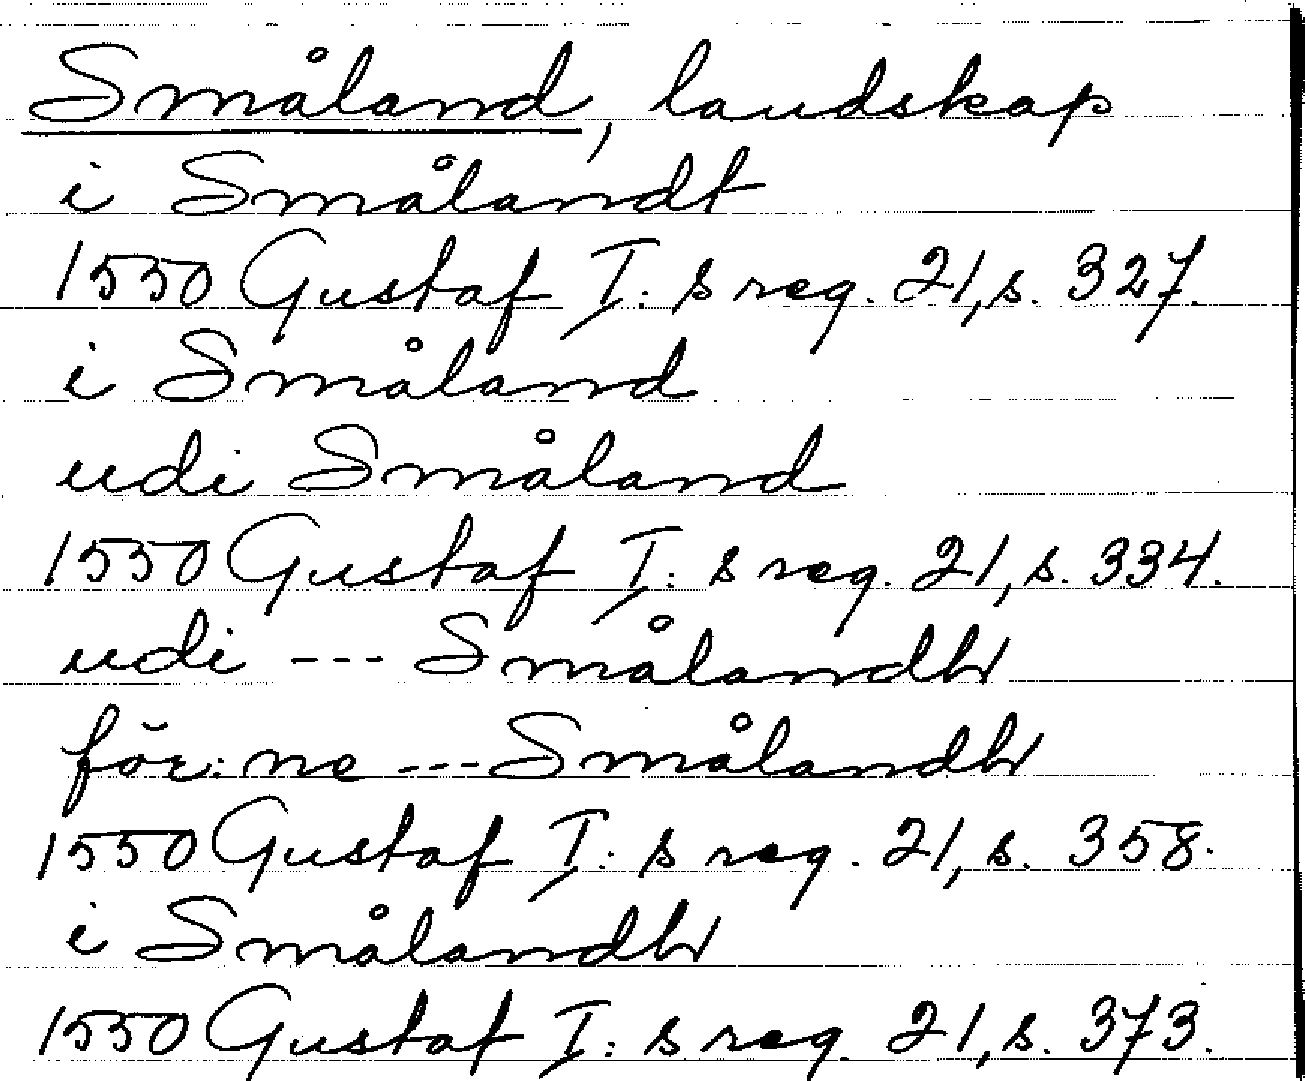 Småland, landskap
i Smålandt
1550 Gustaf I: s reg. 21, s. 327.
i Småland
udi Småland
1550 Gustaf I: s reg. 21, s. 334.
udi --- Smålandh
för: ne --- Smålandh
1550 Gustaf I: s reg. 21, s. 358.
i Smålandh
1550 Gustaf I: s reg. 21, s. 373.